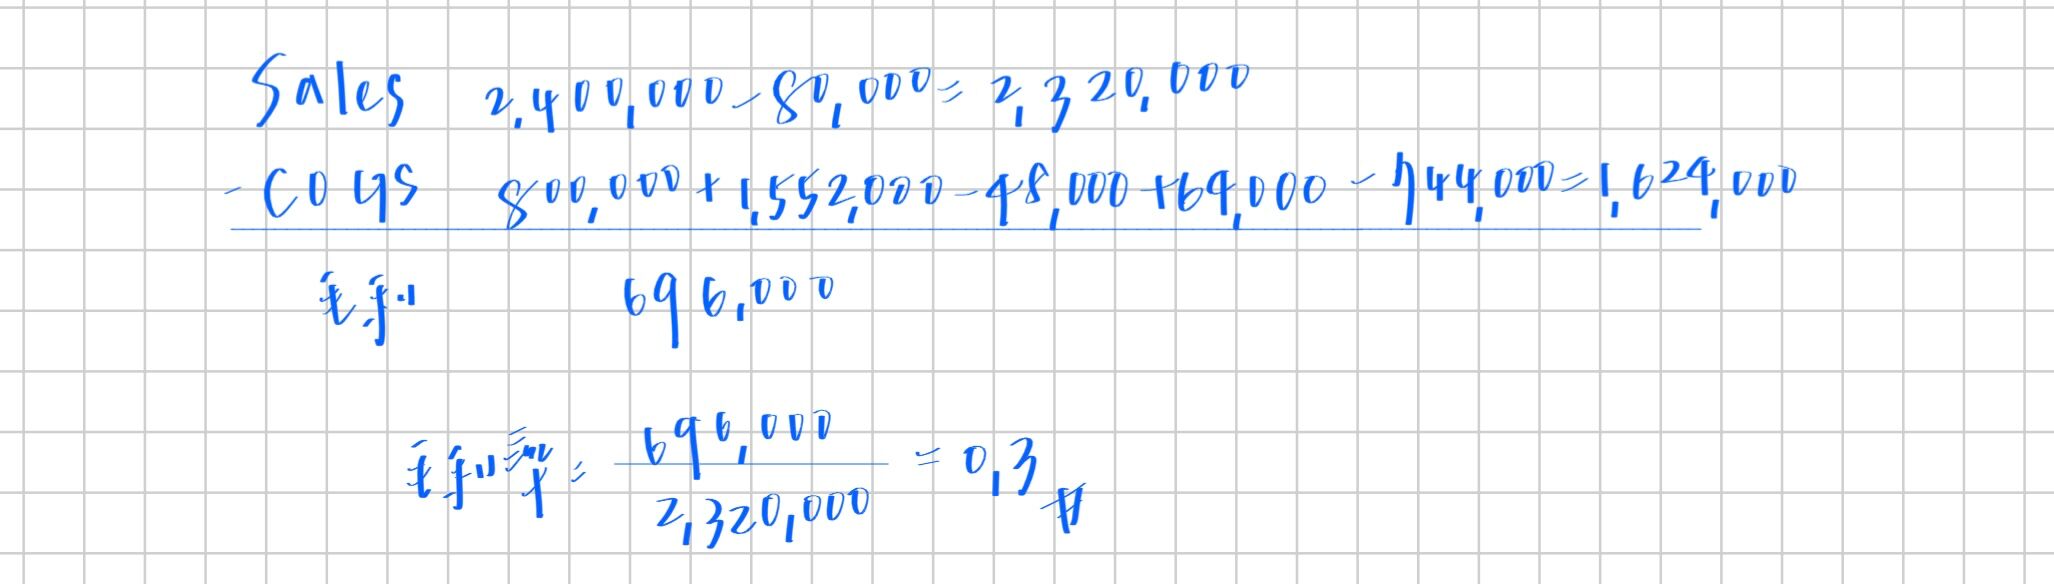 Sales 2,400,000 - 80,000 = 2,320,000
- COGS 800,000 + 1,552,000 - 48,000 + 64,000 - 744,000 = 1,624,000
毛利 696,000
毛利率 = 696,000 / 2,320,000 = 0.3 #